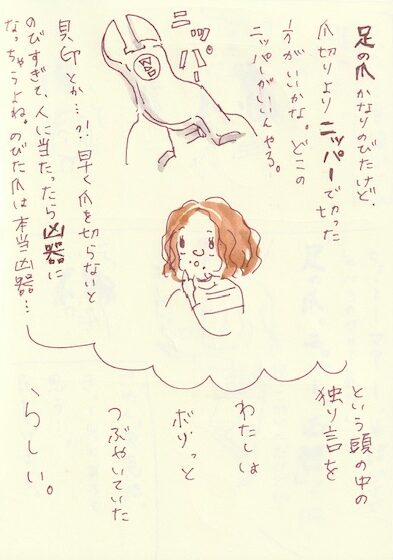 足の爪かなりのびたけど、
爪切りよりニッパーで切った
方がいいかな。どこの
ニッパーがいいんやろ。
ニッパー
貝印とか…?! 早く爪を切らないと
のびすぎて、人に当たったら凶器に
なっちゃうよね。のびた爪は本当凶器…
という頭の中の
独り言を
わたしは
ボソっと
つぶやいていた
らしい。